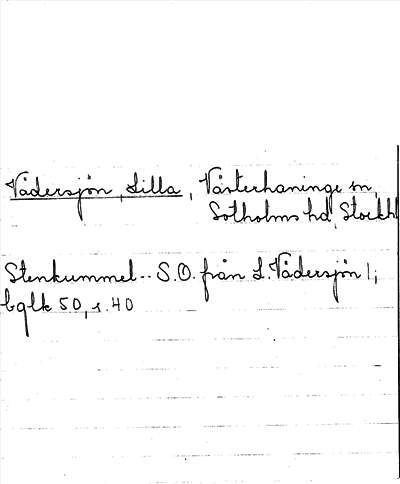 Vädersjön, Lilla, Västerhaninge sn,
Sotholms hd, Stockh
Stenkummel.. S.O. från L. Vädersjön 1;
bglk 50, s. 40